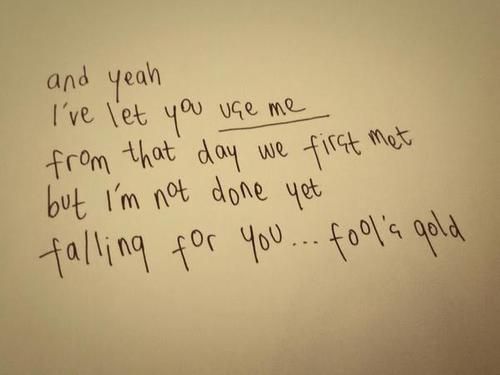 and yeah
I've let you use me
from that day we first met
but I'm not done yet
falling for you... fool's gold